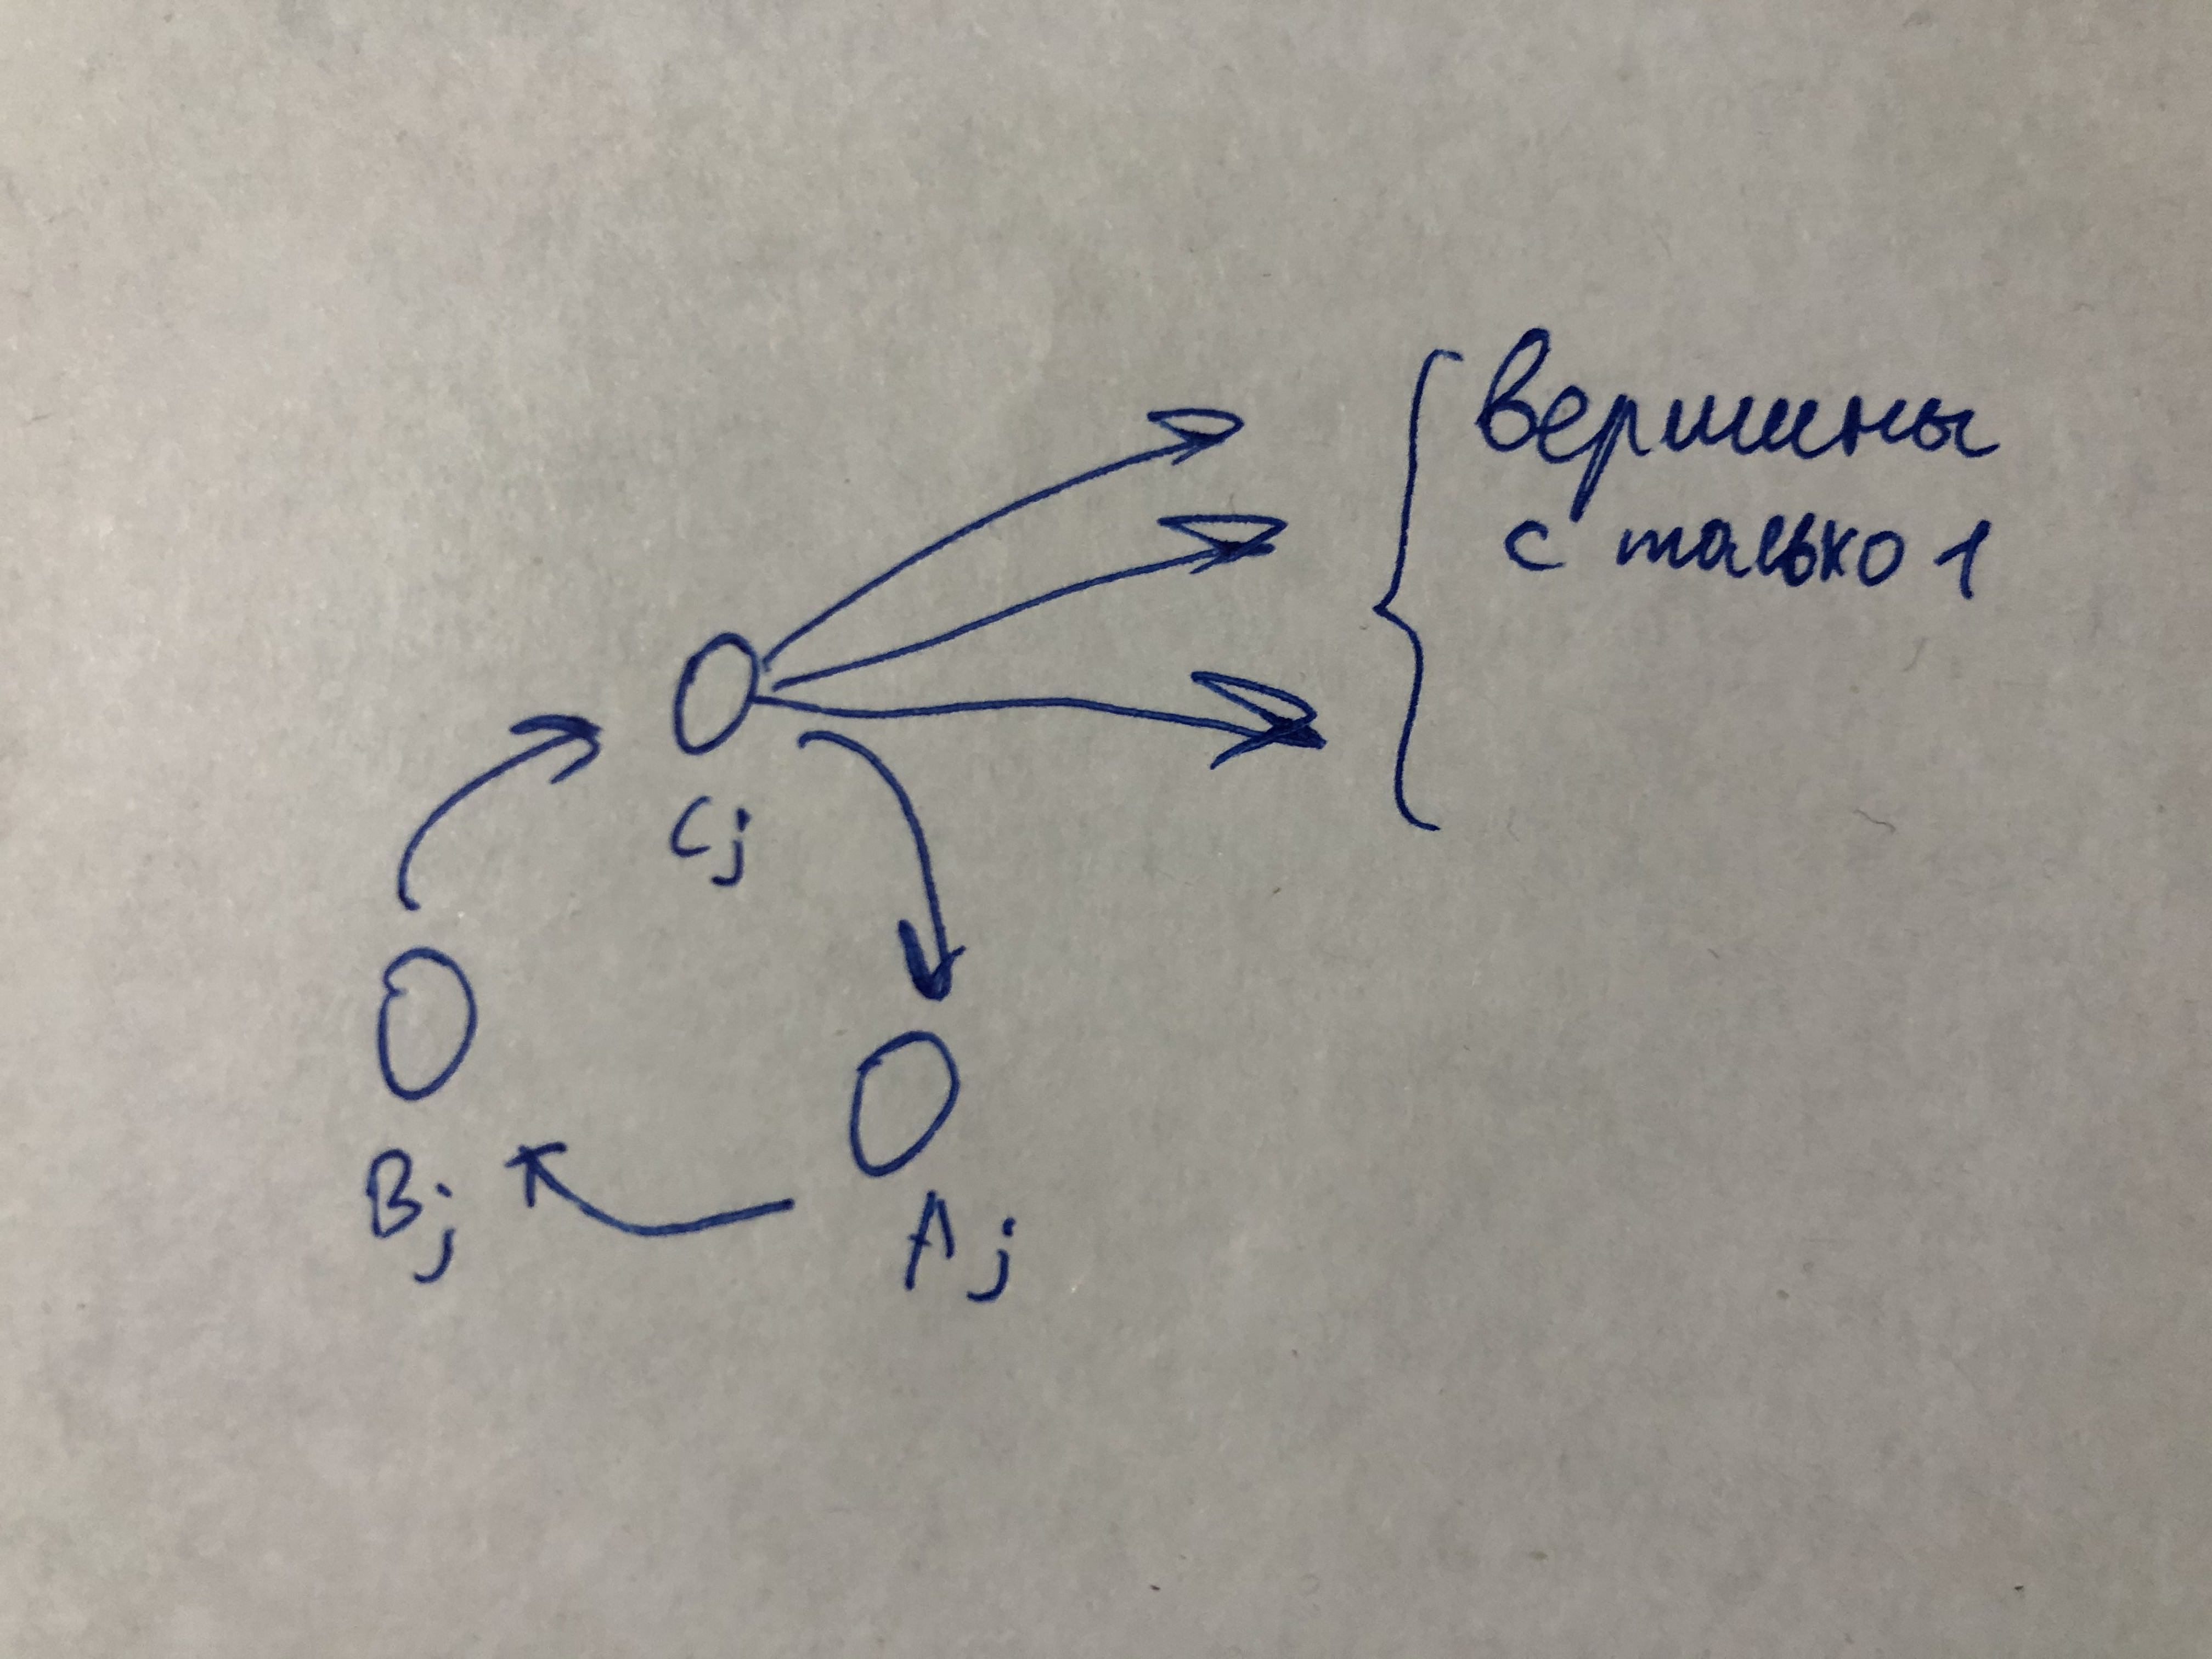 вершины
с только 1
Cj
Bj
Aj